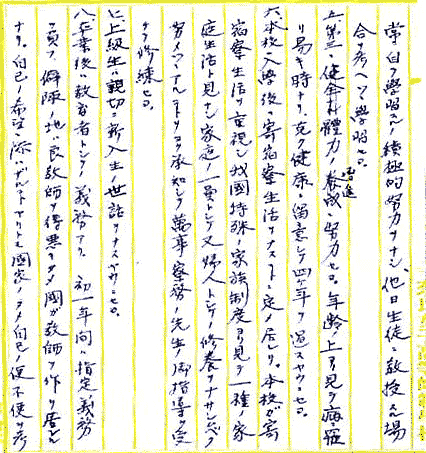 常ニ自ラ學習スル積極的努力ヲナシ、他日生徒ニ敎授スル場
合ヲ考ヘツヽ學習セヨ。
五、第三ノ使命ナル體力ノ養成ニ努力セヨ。年齡上ヨリ見テ病ニ罹
増進
リ易キ時ナリ。克ク健康ニ留意シテ四ヶ年ヲ過スヤウニセヨ。
六、本校入學後ハ寄宿寮生活ヲナスコトニ定メ居レリ。本校ガ寄
宿寮生活ヲ重視シ我國特殊ノ家族制度ヨリ見テ一種ノ家
庭生活ト見ナシ家庭ノ一員トシテ又婦人トシテノ修養ヲナサシムベク
努メツヽアルコトヲヨク承知シテ萬事寮務ノ先生ノ御指導ヲ受
ケテ修練セヨ。
七、上級生ハ親切ニ新入生ノ世話ヲナスヤウニセヨ。
八、卒業後ハ敎育者トシテノ義務アリ 初一年間ハ指定義務
ヲ負フ。僻陬ノ地ハ良敎師ヲ得難キタメ國ガ敎師ヲ作リ居ル
ナリ。自己ノ希望ニ添ハザルコトアリトモ國家ノタメ自己ノ便不便ヲ考